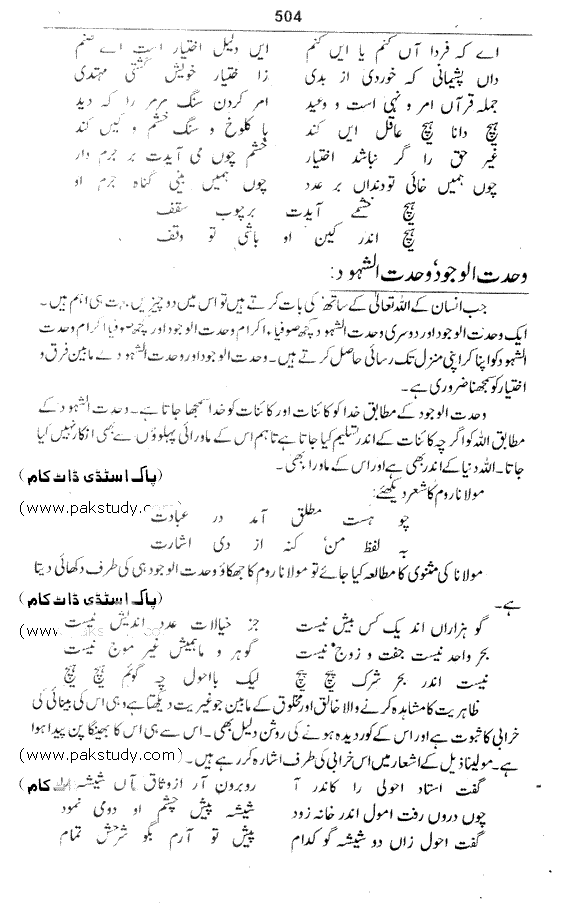 504
اے کہ فردا آں کنم یا ایں کنم ایں دلیل اختیار است اے صنم
داں پشیمانی کہ خوردی از بدی زا ختیار خویش گشتی مہتدی
جملہ قرآں امر و نہی است و وعید امر کردن سنگ مرمر را کہ دید
ہیچ دانا ہیچ عاقل ایں کند با کلوخ و سنگ خشم و کیں کند
غیر حق را گر نباشد اختیار خشم چوں می آیدت بر جرم دار
چوں ہمیں خائی تودنداں بر عدد چوں ہمیں بنی گناہ جرم او
ہیچ خشمے آیدت برچوب سقف
ہیچ اندر کین او باشی تو وقف
وحدت الوجود' وحدت الشہود:
جب انسان کے اللہ تعالیٰ کے ساتھ کی بات کرتے ہیں تو اس میں دو چیزیں بہت ہی اہم ہیں۔
ایک وحدت الوجود اور دوسری وحدت الشہود کچھ صوفیاء اکرام وحدت الوجود اور کچھ صوفیا اکرام وحدت
الشہود کو اپنا کر اپنی منزل تک رسائی حاصل کرتے ہیں۔ وحدت الوجود اور وحدت الشہود کے مابین فرق و
اختیار کو سمجھنا ضروری ہے۔
وحدت الوجود کے مطابق خدا کو کائنات اور کائنات کو خدا سمجھا جاتا ہے۔ وحدت الشہود کے
مطابق اللہ کو اگرچہ کائنات کے اندر تسلیم کیا جاتا ہے تاہم اس کے ماورائی پہلوؤں سے بھی انکار نہیں کیا
جاتا۔ اللہ دنیا کے اندر بھی ہے اور اس کے ماورا بھی۔ (پاک اسٹڈی ڈاٹ کام)
مولانا روم کا شعر دیکھئے:
(www.pakstudy.com)
چو ہست مطلق آمد در عبادت
بہ لفظ من کنہ از دی اشارت
مولانا کی مثنوی کا مطالعہ کیا جائے تو مولانا روم کا جھکاؤ وحدت الوجود ہی کی طرف دکھائی دیتا
ہے۔ (پاک اسٹڈی ڈاٹ کام)
گو ہزاراں اند یک کس بیش نیست جز خیالات عدد اندیش نیست
بحر واحد نیست جفت و زوج نیست گوہر و ماہیش غیر موج نیست
نیست اندر بحر شرک پیچ پیچ لیک بااحول چہ گوئم ہیچ ہیچ
ظاہریت کا مشاہدہ کرنے والا خالق اور مخلوق کے مابین جو غیریت دیکھتا ہے وہی اس کی بینائی کی
خرابی کا ثبوت ہے اور اس کے کور دیدہ ہونے کی روشن دلیل بھی۔ اس سے ہی اس کا بھینگا پن پیدا ہوا
ہے۔ مولینا ذیل کے اشعار میں اس خرابی کی طرف اشارہ کر رہے ہیں۔ (www.pakstudy.com)
گفت استاد احولی را کاندر آ روبرون آر ازوثاق آں شیشہ کام)
چوں دروں رفت امول اندر خانہ زود شیشہ پیش چشم او دوی نمود
گفت احول زاں دو شیشہ گو کدام پیش تو آرم بگو شرحش تمام